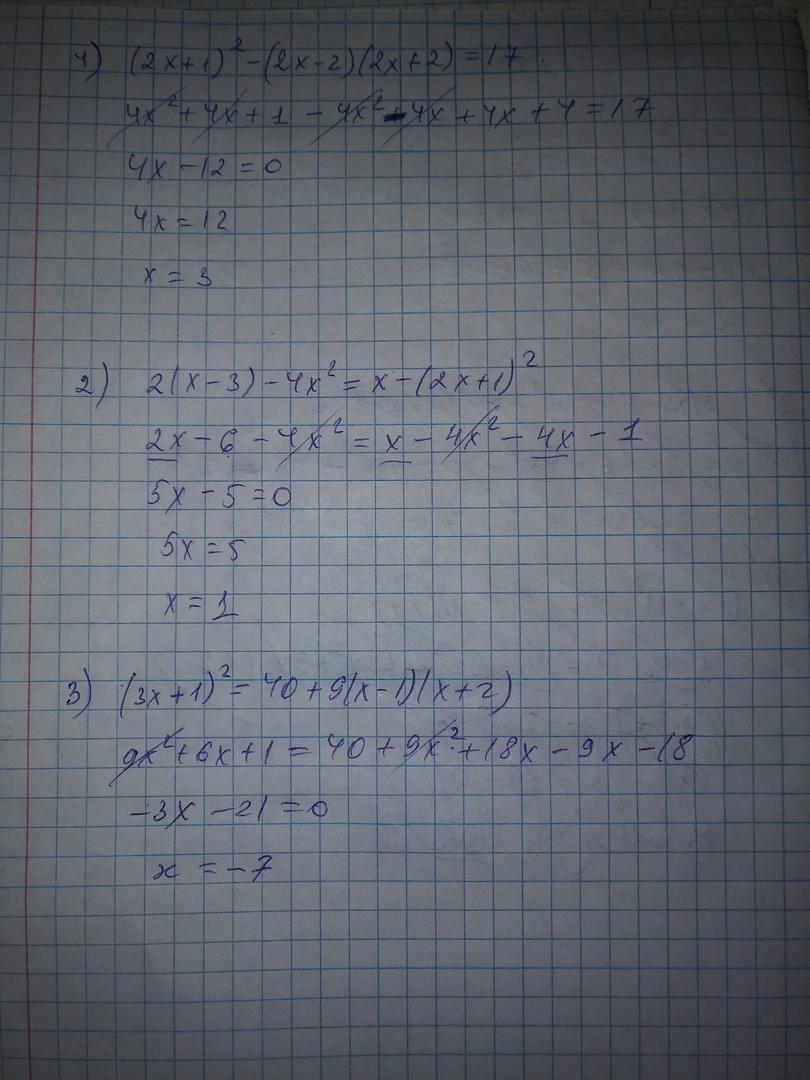 1) (2x+1)² - (2x-2)(2x+2) = 17
4x² + 4x + 1 - 4x² - 4x + 4x + 4 = 17
4x - 12 = 0
4x = 12
x = 3
2) 2(x-3) - 4x² = x - (2x+1)²
2x - 6 - 4x² = x - 4x² - 4x - 1
5x - 5 = 0
5x = 5
x = 1
3) (3x+1)² = 40 + 9(x-1)(x+2)
9x² + 6x + 1 = 40 + 9x² + 18x - 9x - 18
-3x - 21 = 0
x = -7